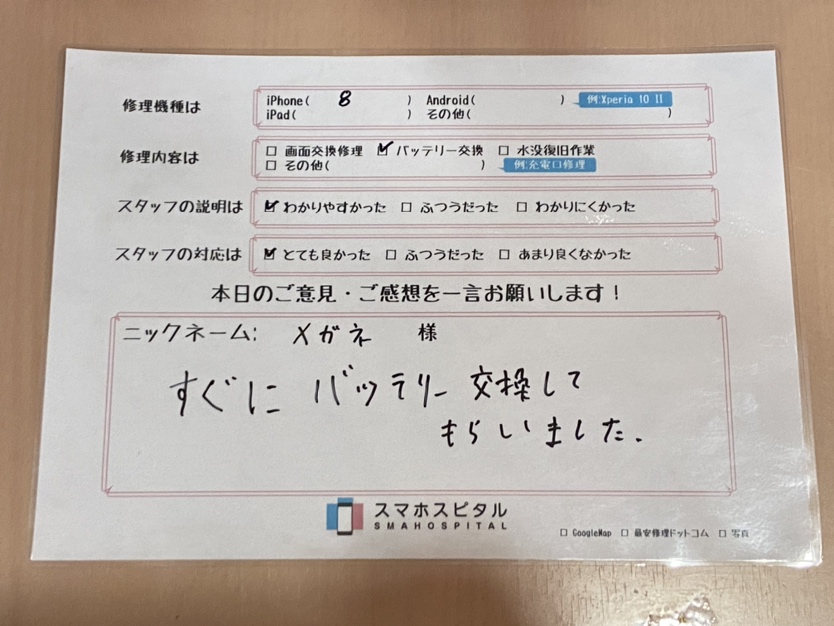 修理機種は
iPhone( 8 ) Android( ) 例:Xperia 10 II
iPad( ) その他( )
修理内容は
□ 画面交換修理 ☑ バッテリー交換 □ 水没復旧作業
□ その他( ) 例:充電口修理
スタッフの説明は ☑ わかりやすかった □ ふつうだった □ わかりにくかった
スタッフの対応は ☑ とても良かった □ ふつうだった □ あまり良くなかった
本日のご意見・ご感想を一言お願いします!
ニックネーム: メガネ 様
すぐに バッテリー 交換して
もらいました.
スマホスピタル
SMAHOSPITAL
□ GoogleMap □ 最安修理ドットコム □ 写真